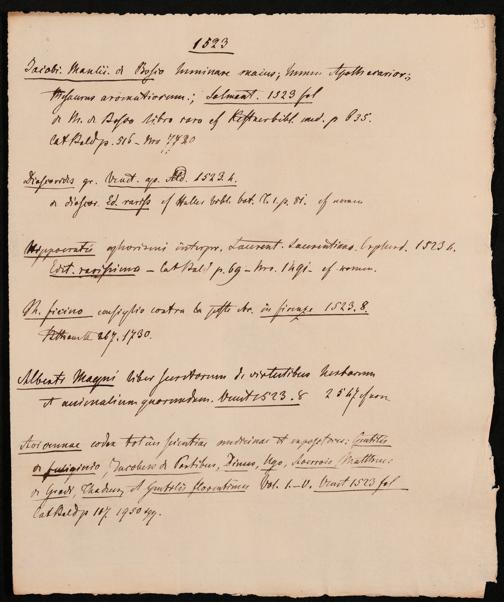 93
1523
Jacobi Manlii de Bosco luminare maius; lumen Apothecarior.;
thesaurus aromatariorum.; Salmant. 1523 fol
de M. de Bosco libro raro cf Kestner bibl. med. p 635.
Cat Bald p. 516 - Nro 7720
Dioscorides gr. Venet. ap. Ald. 1523. 4.
de dioscor. Ed rariss cf Haller bibl. bot. T. 1. p. 81. cf
Hippocratis aphorismi interpr. Laurent. Laurentiano. Lugdund. 1523
Edit. rarissima - Cat Bald p. 69 - Nro. 1491 - cf
M. ficino consiglio contra la peste in firenze 1523. 8.
267. 1730.
Alberti Magni liber secretorum de virtutibus herbarum
et animalium quorundam. Venet 1523. 8 2547 cf
Avicennae totius scientiae medicinae et expositores: Gentilis
de fuliginio, Jacobus de Partibus, Dinus, Ugo, Averrois, Matthaeus
de Gradi, Thadeus, et Gentilis florentinus Vol. 1.-V. Venet 1523 fol
Cat Bald p 107. 1950 sqq.